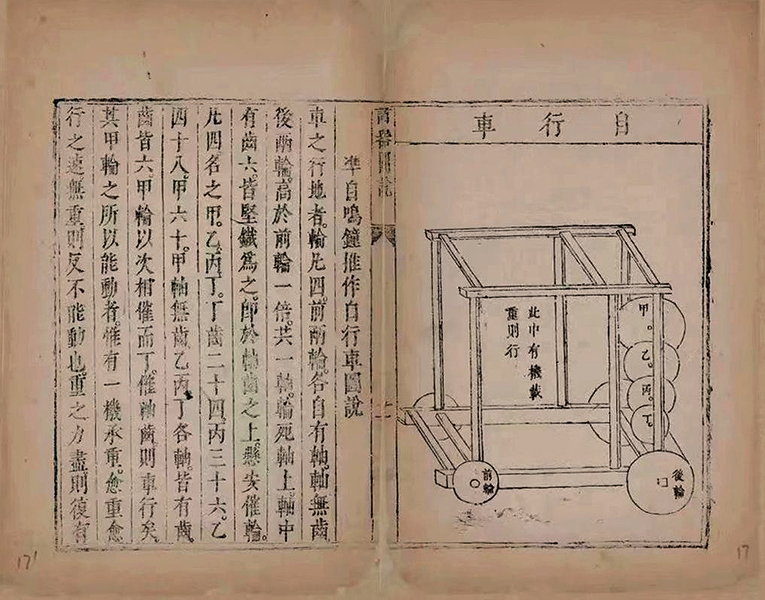 自行車
此中有機載
重則行
甲。
乙。
丙。
丁
前輪
後輪
諸器圖說
準自鳴鐘推作自行車圖說
車之行地者。輪凡四。前兩輪。各自有軸。軸無齒
後兩輪。高於前輪一倍。共一軸。輪死軸上。軸中
有齒六。皆堅鐵爲之。卽於軸齒之上。懸安催輪。
凡四名之甲。乙丙丁。丁齒二十四丙三十六。乙
四十八。甲六十。甲軸無齒。乙丙丁各軸。皆有齒。
齒皆六。甲輪以次相催而丁。催軸齒。則車行矣。
其甲輪之所以能動者。惟有一機承重。愈重愈
行之速。無重則反不能動也。重之力盡。則復有
17
17'